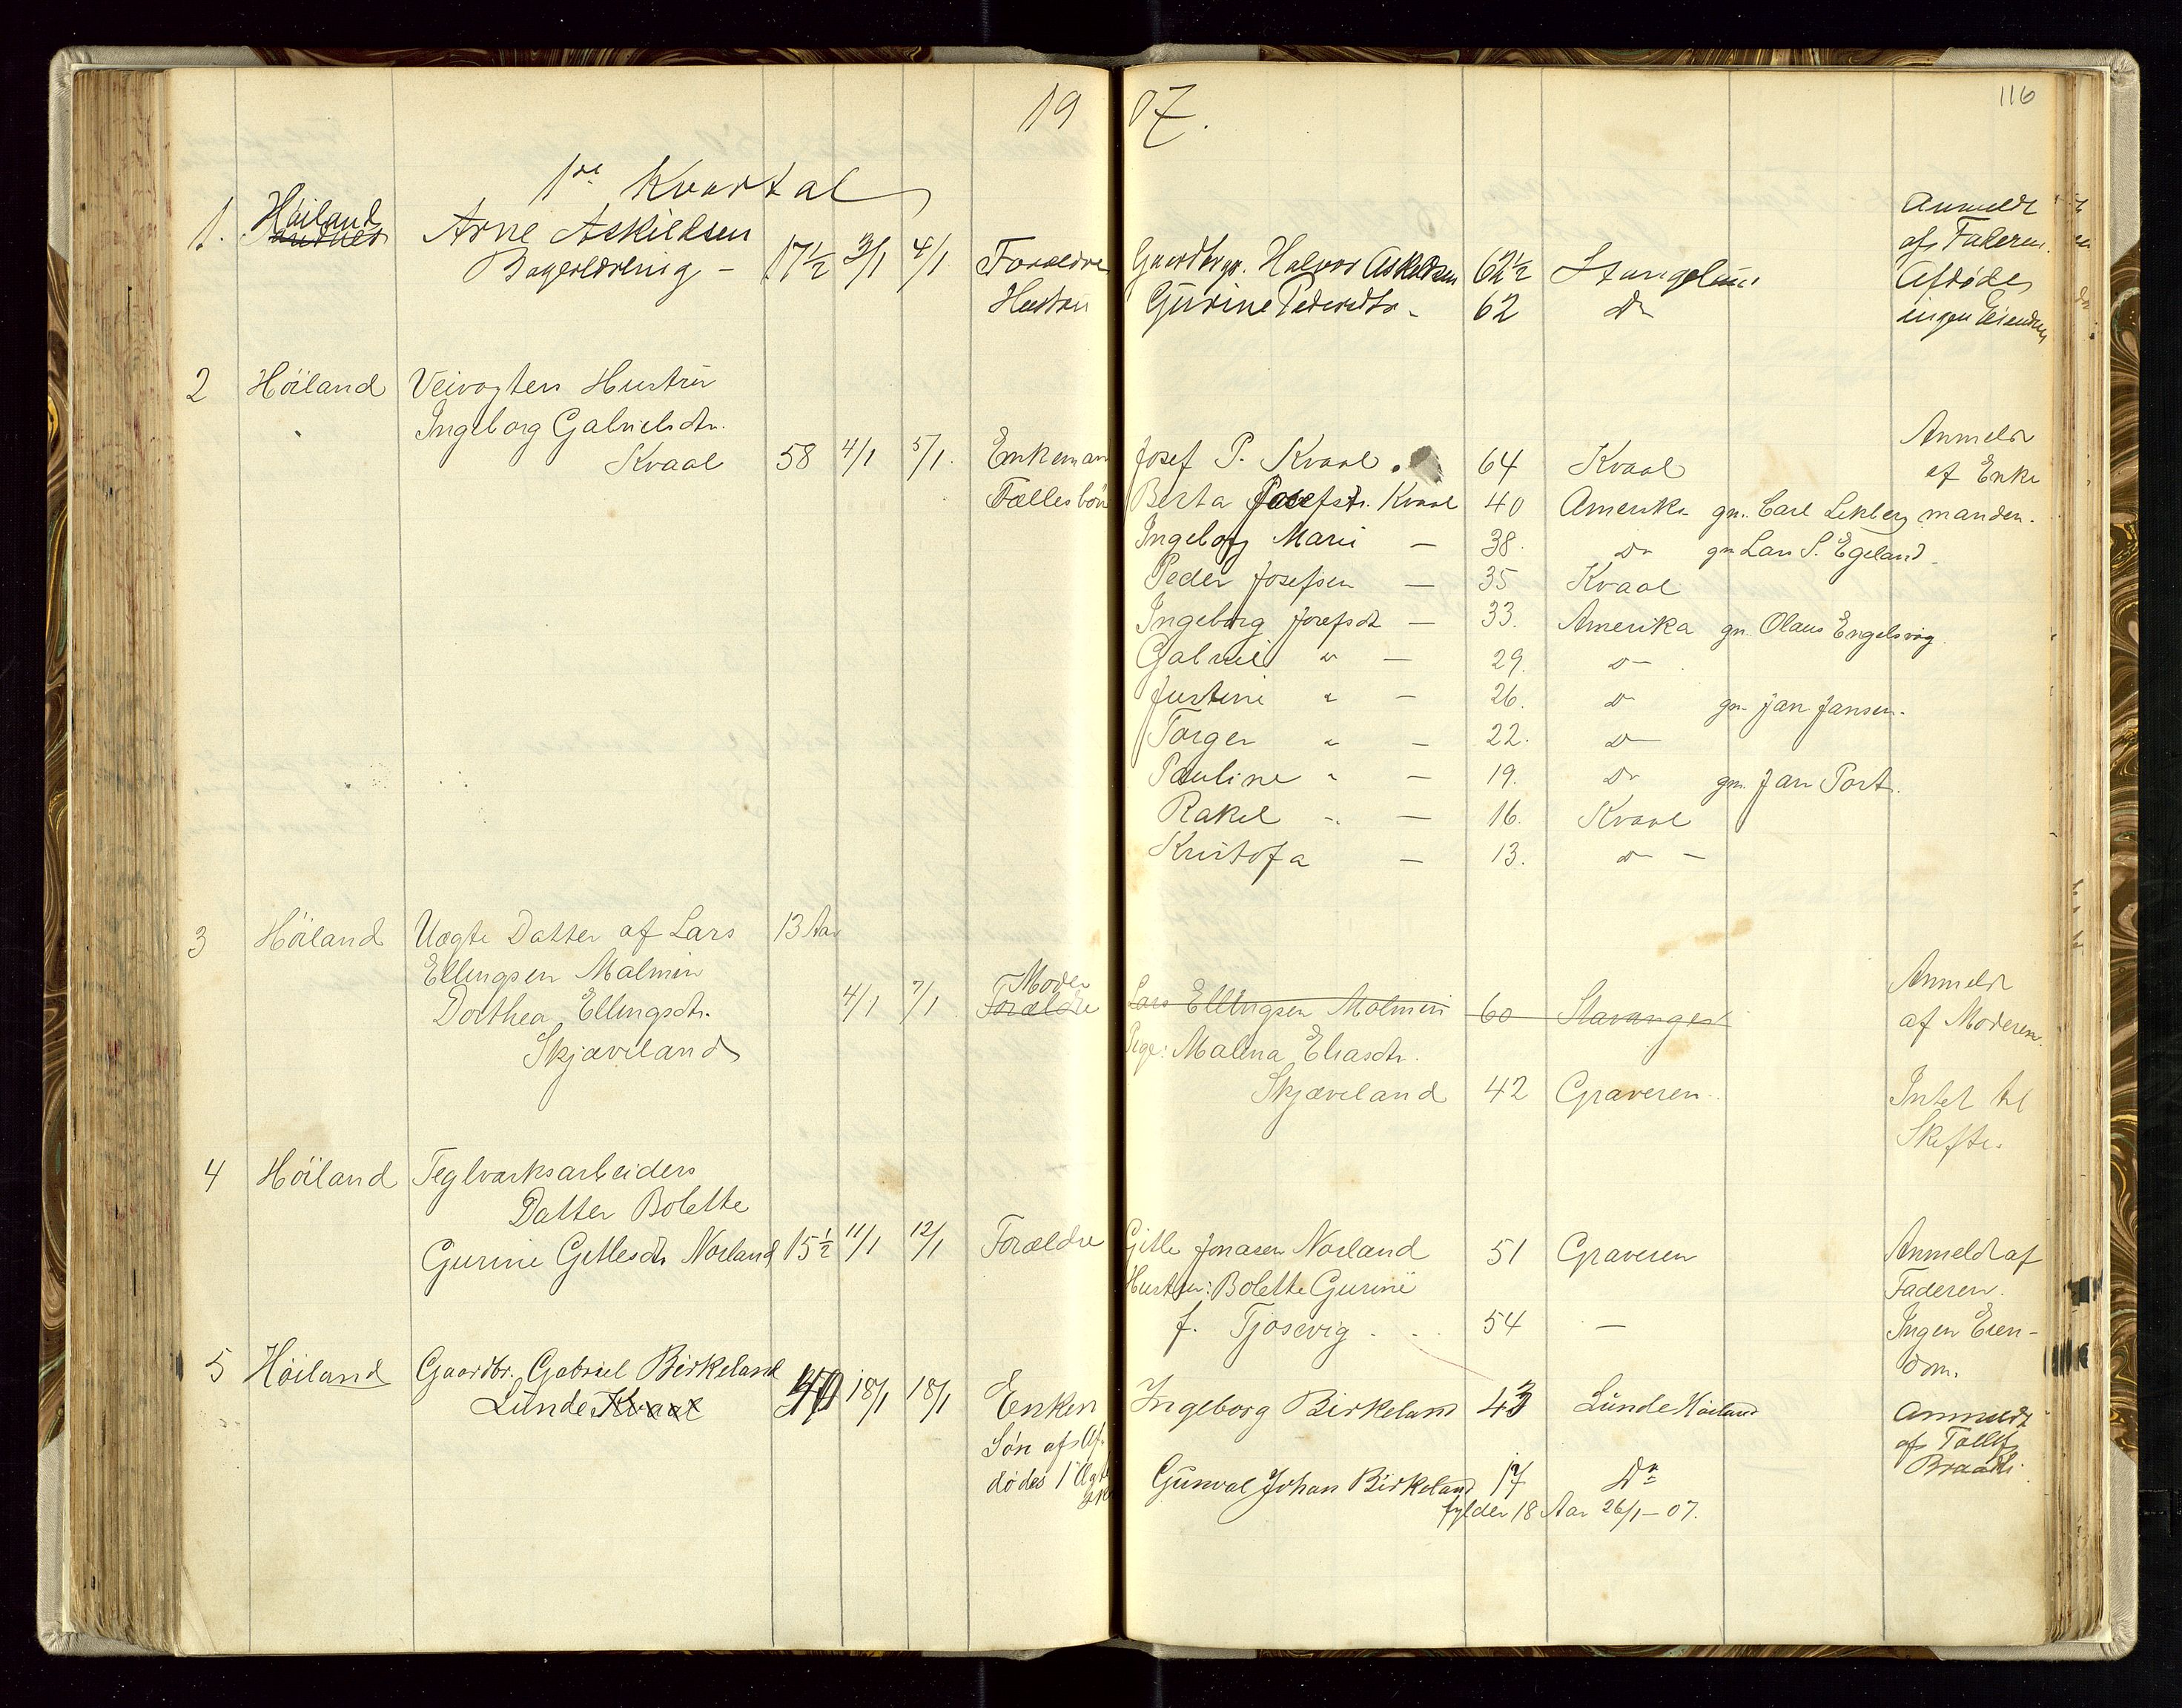 1907.
116
1ste Kvartal
1. Høiland Arne Askildsen
Bagerlærling - 17½ 3/1 4/1 Forældre Gaardbrgr. Halvor Askildsen 62½ Stangeland
Hustru Gurine Pedersdtr - 62 Do
Anmeldt
af Faderen.
Afdøde
ingen Eiendom
2 Høiland Veivogters Hustru
Ingeborg Gabrielsdtr.
Kvaal 58 4/1 5/1. Enkeman Josef P. Kvaal. 64 Kvaal
Anmeldt
af Enke
manden.
Fællesbörn Berta Josefsdtr. Kvaal 40 Amerika gm. Carl Lekberg
Ingeborg Marie — 38. Do gm Lars S. Egeland
Peder Josefsen — 35 Kvaal
Ingeborg Josefsdt — 33. Amerika gm. Olaus Engelsvåg.
Gabriel " — 29. Do — .
Justine " — 26. Do gm. Jan Jansen.
Torger " — 22. Do —
Pauline " — 19. Do gm. Jan Port.
Rakel " — 16. Kvaal
Kristofa — 13. Do —
3 Høiland Uægte Datter af Lars 13 Aar
Ellingsen Malmin
Dorthea Ellingsdtr. 4/1 7/1 Moder Forældre Lars Ellingsen Malmin 60 Stavanger
Skjæveland
Pige: Malina Eliasdtr.
Skjæveland 42 Graveren.
Anmeldt
af Moderen.
Intet til
Skifte.
4 Høiland Teglværksarbeiders
Datter Bolette
Gurine Gitlesdtr Norland 15½ 11/1 12/1 Forældre Gitle Jonasen Norland 51 Graveren
Hustru: Bolette Gurine
f. Tjosevig . . . 54 —
Anmeldt af
Faderen.
Ingen Eien-
dom.
5 Høiland Gaardbr. Gabriel Birkeland
Lunde Kvaal 18/1 18/1 Enken Ingeborg Birkeland 43 Lunde Høiland
Søn af Af-
dødes 1. Ægte
Gunval Johan Birkeland 17 Do
fylder 18 Aar 26/1-07.
Anmeldt
af Tollef